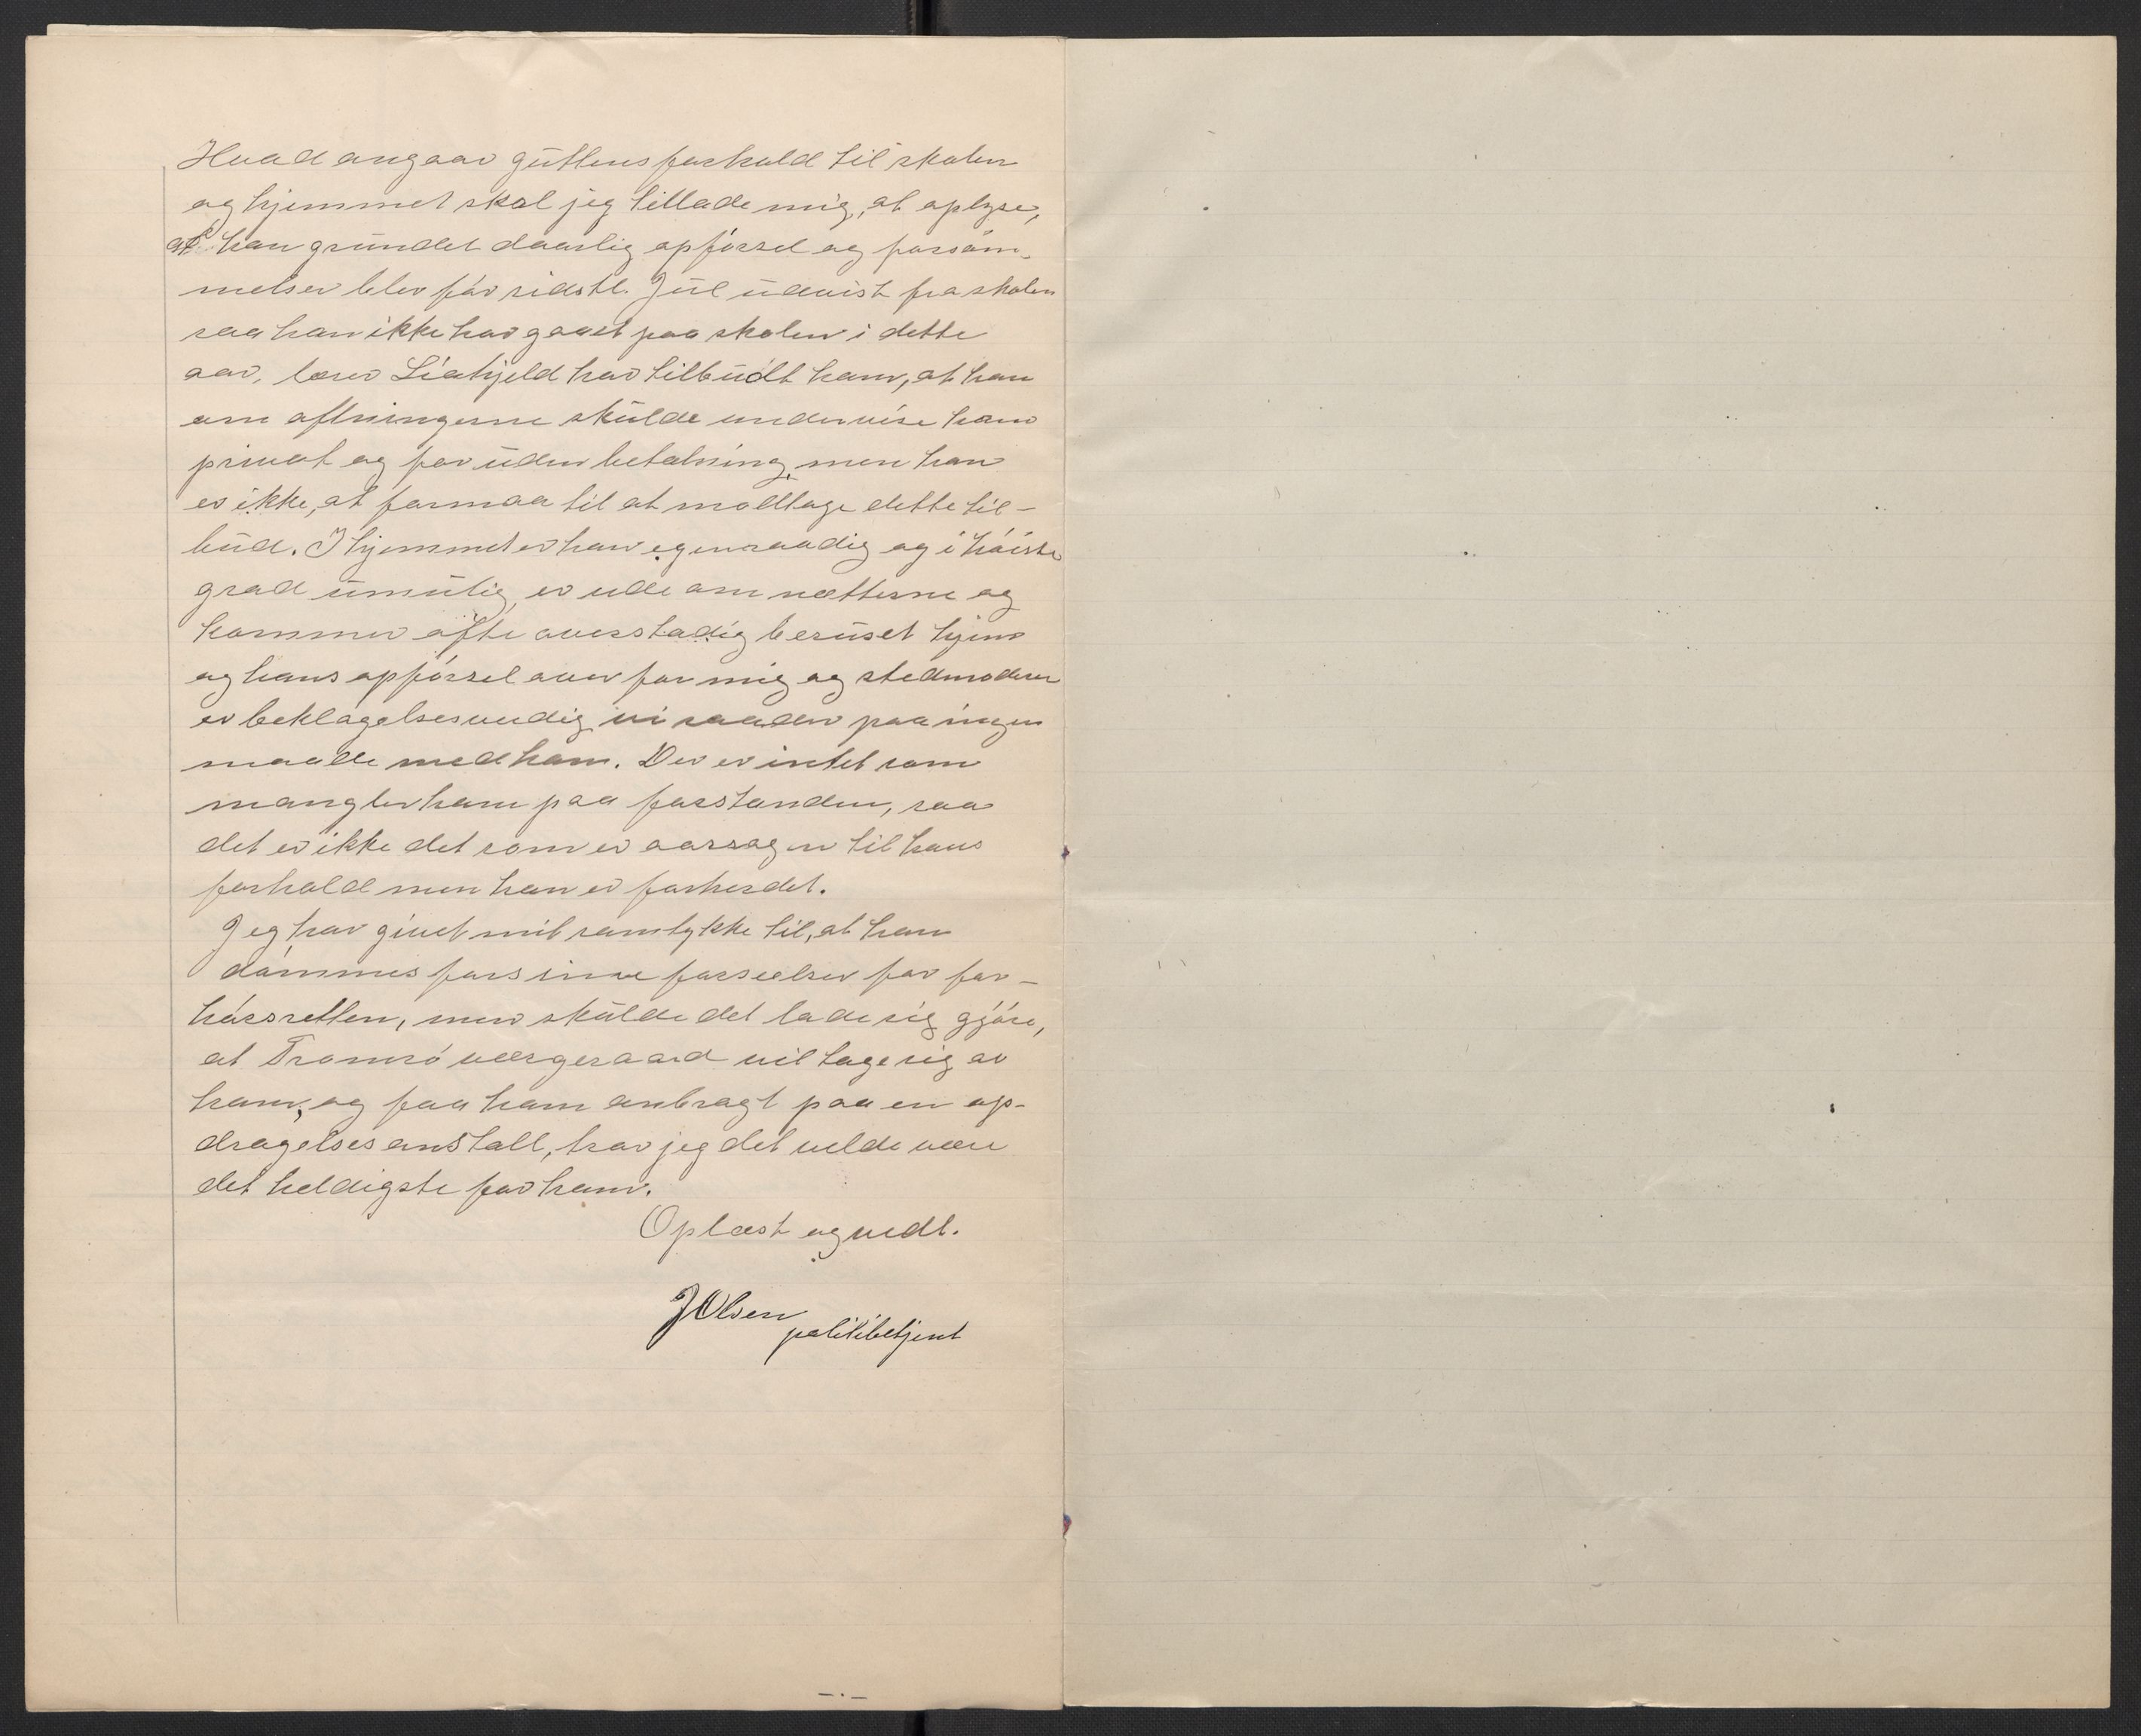 Hvad angaar guttens forhold til skolen
og hjemmet skal jeg tillade mig, at oplyse,
at han grundet daarlig opførsel og forsøm-
melser blev før sidstl. Jul udvist fra skolen
saa han ikke har gaaet paa skolen i dette
aar, lærer har tilbudt ham, at han
om aftningerne skulde undervise ham
privat og for uden betalning, men han
er ikke, at formaa til at modtage dette til-
bud. I hjemmet er han egenraadig og i høiste
grad umulig, er ude om nætterne og
kommer ofte overstadig beruset hjem
og hans opførsel over for mig og stedmoderen
er beklagelsesverdig, vi raader paa ingen
maade med ham. Der er intet som
mangler ham paa forstanden, saa
det er ikke det som er aarsagen til hans
forhold men han er forherdet.
Jeg har givet mit samtykke til, at han
dømmes for sinne forseelser for for-
hørsretten, men skulde det lade sig gjøre,
at Tromsø værgeraad vil tage sig av
ham, og faa ham anbragt paa en op-
dragelsesanstalt, tror jeg det vilde være
det heldigste for ham.
Oplæst og vedt.
J Olsen
politibetjent